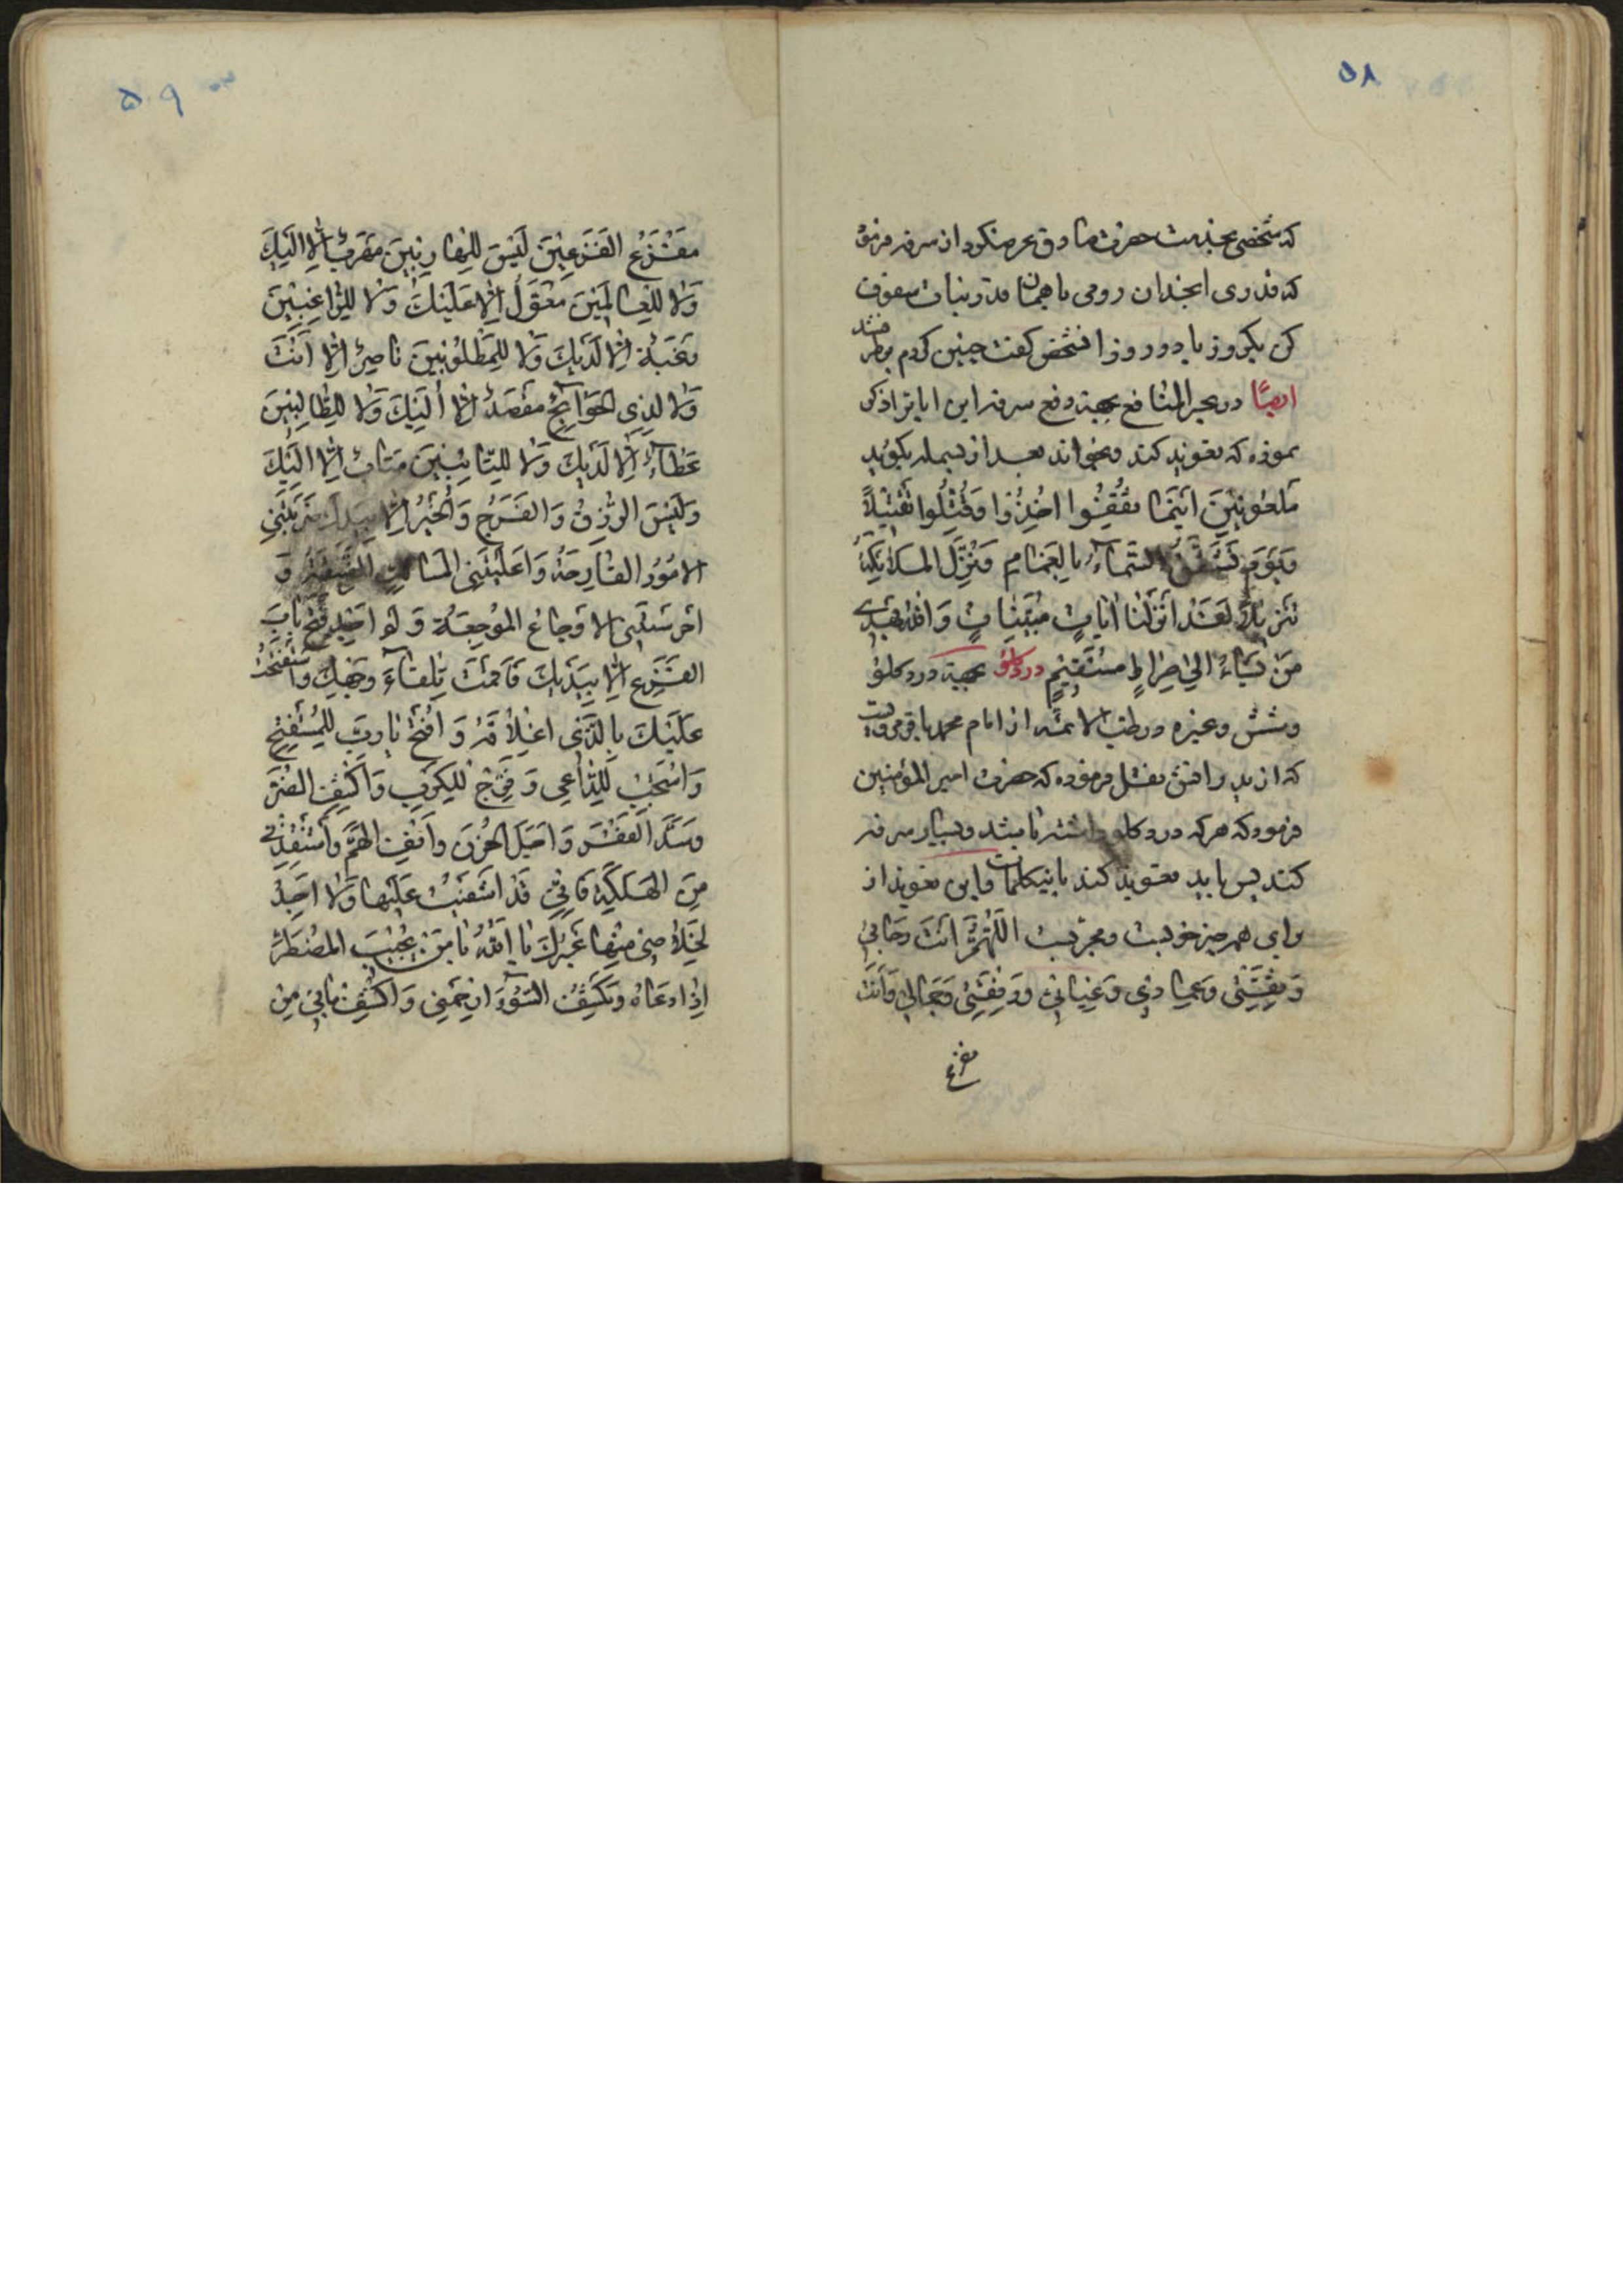 ۵۸
که شخصی بخدمت حضرت صادق عرض نکود از سرفه فرمود
که قدری انجدان رومی با همان قدر نبات سفوف
کن یکروز یا دو روز انشخص کفت چنین کردم برطرف شد
ایضا در بحر المنافع بجهة دفع سرفه این ایات را ذکر
نموده که تعوید کند و بخواند بعد از بسمله بکوید
مَلعُونِینَ اَینَما ثُقِفُوا اُخِذُوا وَقُتِّلُوا تَقتِیلاً
وَیَومَ تَشَقَّقُ السَّماءُ بِالغَمامِ وَنُزِّلَ المَلائِکَةُ
تَنزیلاً لَقَد اَنزَلنا ایاتٍ مُبَیِّناتٍ وَاللهُ یَهدی
مَن یَشاءُ اِلی صِراطٍ مُستَقیمٍ درد کلو بجهة درد کلو
وشش وغیره در طب الائمه از امام محمد باقر مرویست
که از پدرانش نقل فرموده که حضرت امیر المؤمنین
فرمود که هر که درد کلو داشته باشد و بسیار سرفه
کند پس باید تعوید کند باینکلمات و این تعوید از
برای همه چیز خوبست ومجربست اَللّهُمَّ اَنتَ رَجائی
وَثِقَتی وَعِمادی وَغِیاثی وَرِفعَتی وَجَمالی وَاَنتَ
مفزع
۵۹
مَفزَعُ الفَزِعینَ لَیسَ لِلهارِبینَ مَهرَبٌ اِلّا اِلَیکَ
وَلا لِلعالَمینَ مُعَوَّلٌ اِلّا عَلَیکَ وَلا لِلرّاغِبینَ
رَغبَة اِلّا لَدَیکَ وَلا لِلمَظلُومینَ ناصِرٌ اِلّا اَنتَ
وَلا لِذِی الحَوائِجِ مَقصَدٌ اِلّا اِلَیکَ وَلا لِلطّالِبینَ
عَطاءٌ اِلّا لَدَیکَ وَلا لِلتّائِبینَ مَتابٌ اِلّا اِلَیکَ
وَلَیسَ الرِّزقُ وَالفَرَجُ وَالخَیرُ اِلّا بِیَدِکَ
الاُمُورُ الفادِحَةُ وَاَعیَتنی المَسالِکُ الضَّیِّقَةُ وَ
الاَوجاعُ المُوجِعَةُ وَلَم اَجِد فَتحَ بابِ
الفَرَجِ اِلّا بِیَدِکَ فَاَقَمتُ تِلقاءَ وَجهِکَ وَاستَفتَحتُ
عَلَیکَ بِالدُّعاءِ اِغلاقَهُ وَافتَح یا رَبِّ لِلمُستَفتِحِ
وَاستَجِب لِلدّاعی وَفَرِّج لِلکَربِ وَاکشِفِ الضُّرَّ
وَسُدَّ الفَقرَ وَاجلُ الحُزنَ وَانفِ الهَمَّ وَاستَنقِذنی
مِنَ الهَلَکَةِ فَاِنّی قَد اَشفَیتُ عَلَیها وَلا اَجِدُ
لِخَلاصی مِنها غَیرَکَ یا اَللهُ یا مَن یُجیبُ المُضطَرَّ
اِذا دَعاهُ وَیَکشِفُ السُّوءَ اِرحَمنی وَاکشِف ما بی مِن